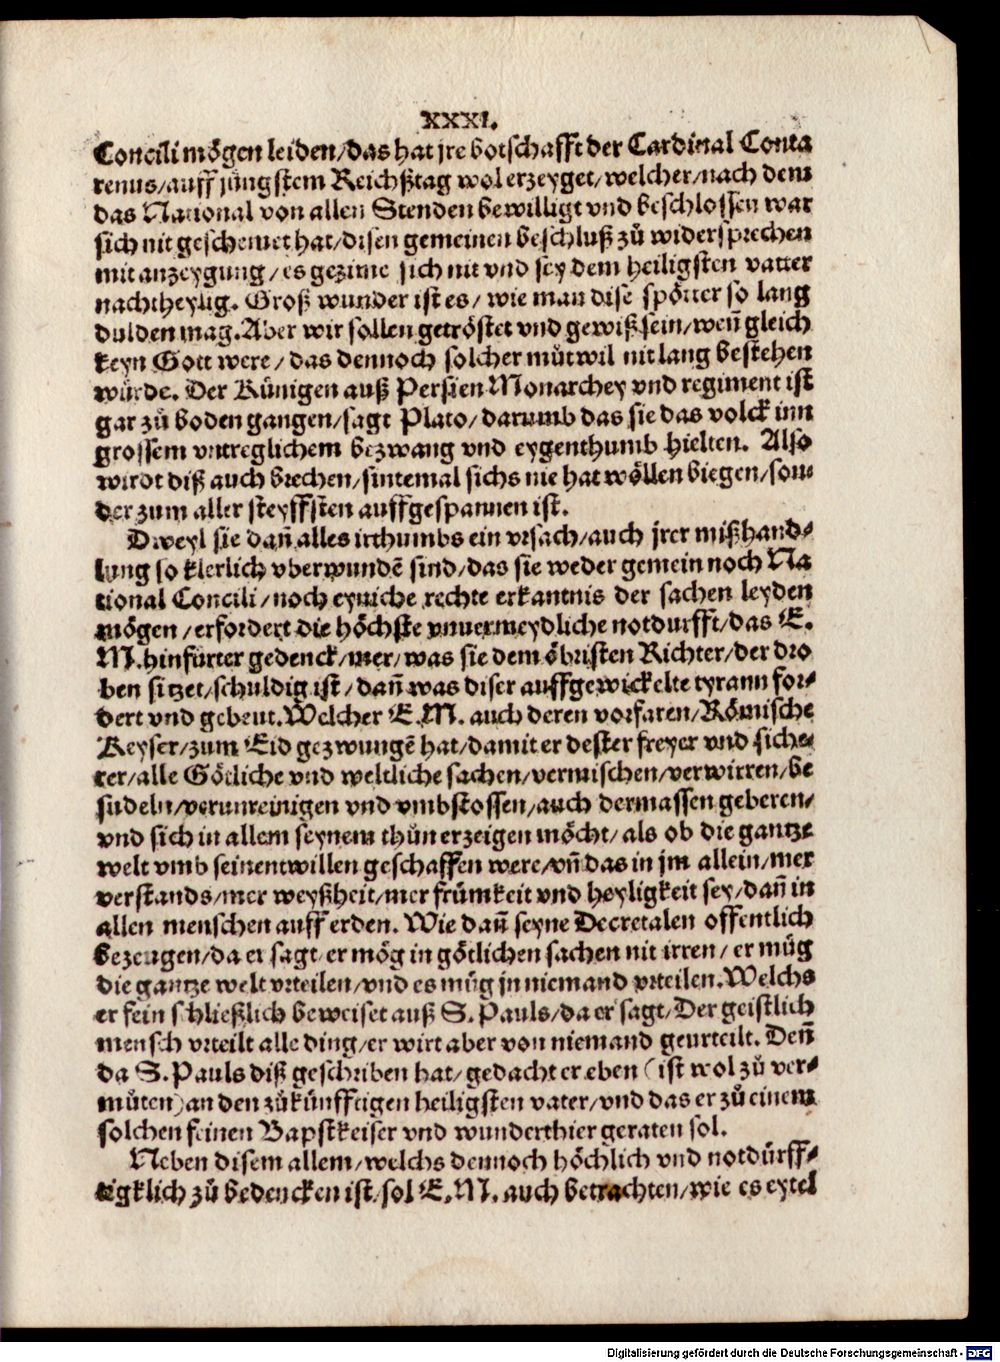 XXXI.
Concili mögen leiden/das hat jre botschafft der Cardinal Conta
renus/auff jüngstem Reichßtag wol erzeyget/welcher/nach dem
das National von allen Stenden bewilligt vnd beschlossen war
sich nit geschemet hat/disen gemeinen beschluß zů widersprechen
mit anzeygung/es gezime sich nit vnd sey dem heiligsten vatter
nachtheylig. Groß wunder ist es/wie man dise spötter so lang
dulden mag. Aber wir sollen getröstet vnd gewiß sein/weñ gleich
keyn Gott were/das dennoch solcher můtwil nit lang bestehen
würde. Der Künigen auß Persien Monarchey vnd regiment ist
gar zů boden gangen/sagt Plato/darumb das sie das volck inn
grossem vntreglichem bezwang vnd eygenthumb hielten. Also
wirdt diß auch brechen/sintemal sichs nie hat wöllen biegen/son-
der zum aller steyffsten auffgespannen ist.
Dweyl sie dañ alles irthumbs ein vrsach/auch jrer mißhand-
lung so klerlich vberwundē sind/das sie weder gemein noch Na
tional Concili/noch eyniche rechte erkantnis der sachen leyden
mögen/erfordert die höchste vnuermeydliche notdurfft/das E.
M. hinfürter gedenck/mer/was sie dem öbristen Richter/der dro
ben sitzet/schuldig ist/dañ was diser auffgewickelte tyrann for-
dert vnd gebeut. Welcher E.M. auch deren vorfaren/Römische
Keyser/zum Eid gezwungē hat/damit er dester freyer vnd siche-
rer/alle Götliche vnd weltliche sachen/vermischen/verwirren/be
sudeln/verunreinigen vnd vmbstossen/auch dermassen geberen/
vnd sich in allem seynem thůn erzeigen möcht/als ob die gantze
welt vmb seinentwillen geschaffen were/vñ das in jm allein/mer
verstands/mer weyßheit/mer frümkeit vnd heyligkeit sey/dañ in
allen menschen auff erden. Wie dañ seyne Decretalen offentlich
bezeugen/da er sagt er mög in götlichen sachen nit irren/er müg
die gantze welt vrteilen/vnd es müg jn niemand vrteilen. Welchs
er fein schließlich beweiset auß S. Pauls/da er sagt/Der geistlich
mensch vrteilt alle ding/er wirt aber von niemand geurteilt. Deñ
da S. Pauls diß geschriben hat/gedacht er eben (ist wol zů ver-
můten) an den zůkünfftigen heiligsten vater/vnd das er zů einem
solchen feinen Bapstkeiser vnd wunderthier geraten sol.
Neben disem allem/welchs dennoch höchlich vnd notdürff-
tigklich zů bedencken ist/sol E.M. auch betrachten/wie es eytel
Digitalisierung gefördert durch die Deutsche Forschungsgemeinschaft - DFG